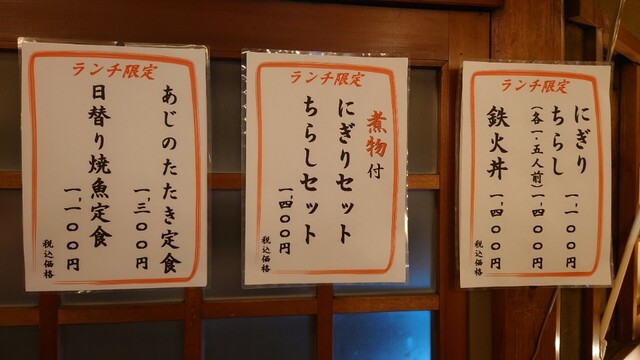 ランチ限定
あじのたたき定食
一、三〇〇円
日替り焼魚定食
一、一〇〇円
税込価格
ランチ限定
煮物付
にぎりセット
ちらしセット
一、四〇〇円
税込価格
ランチ限定
にぎり
一、一〇〇円
ちらし
(各一・五人前)一、四〇〇円
鉄火丼
一、四〇〇円
税込価格